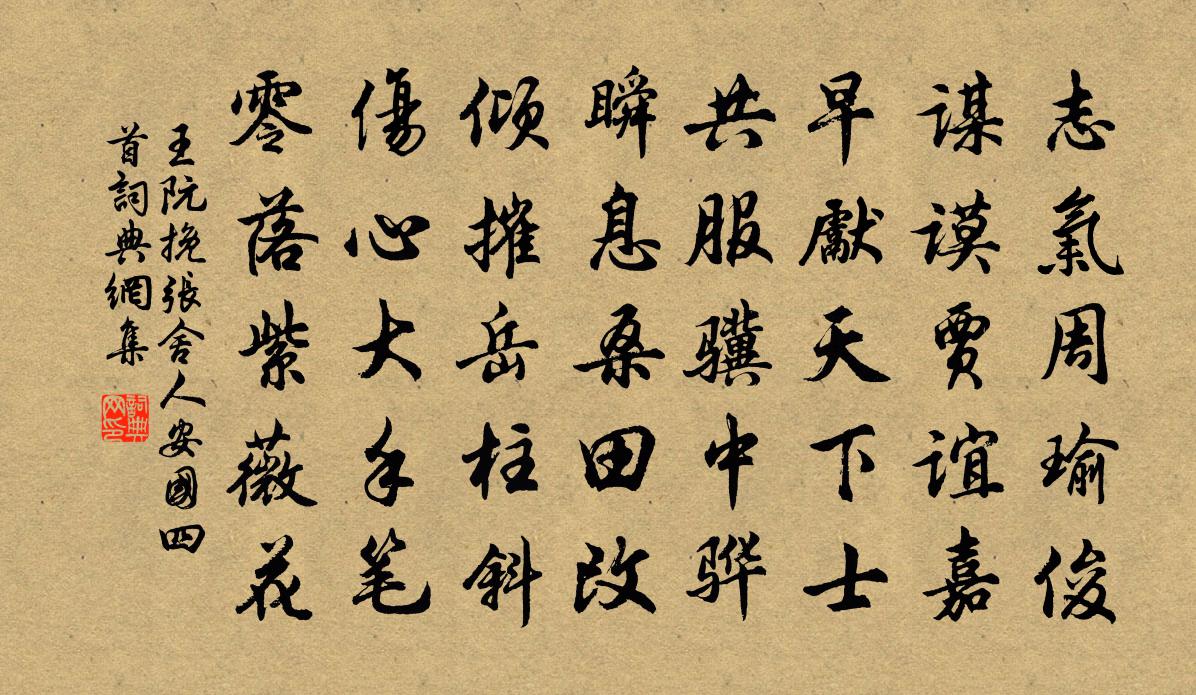 志氣周瑜俊
謀謨賈誼嘉
早獻天下士
共服驥中骅
瞬息桑田改
傾摧岳柱斜
傷心大手笔
零落紫薇花
王阮挽張舍人安國四
首詞典網集
詞典
网印